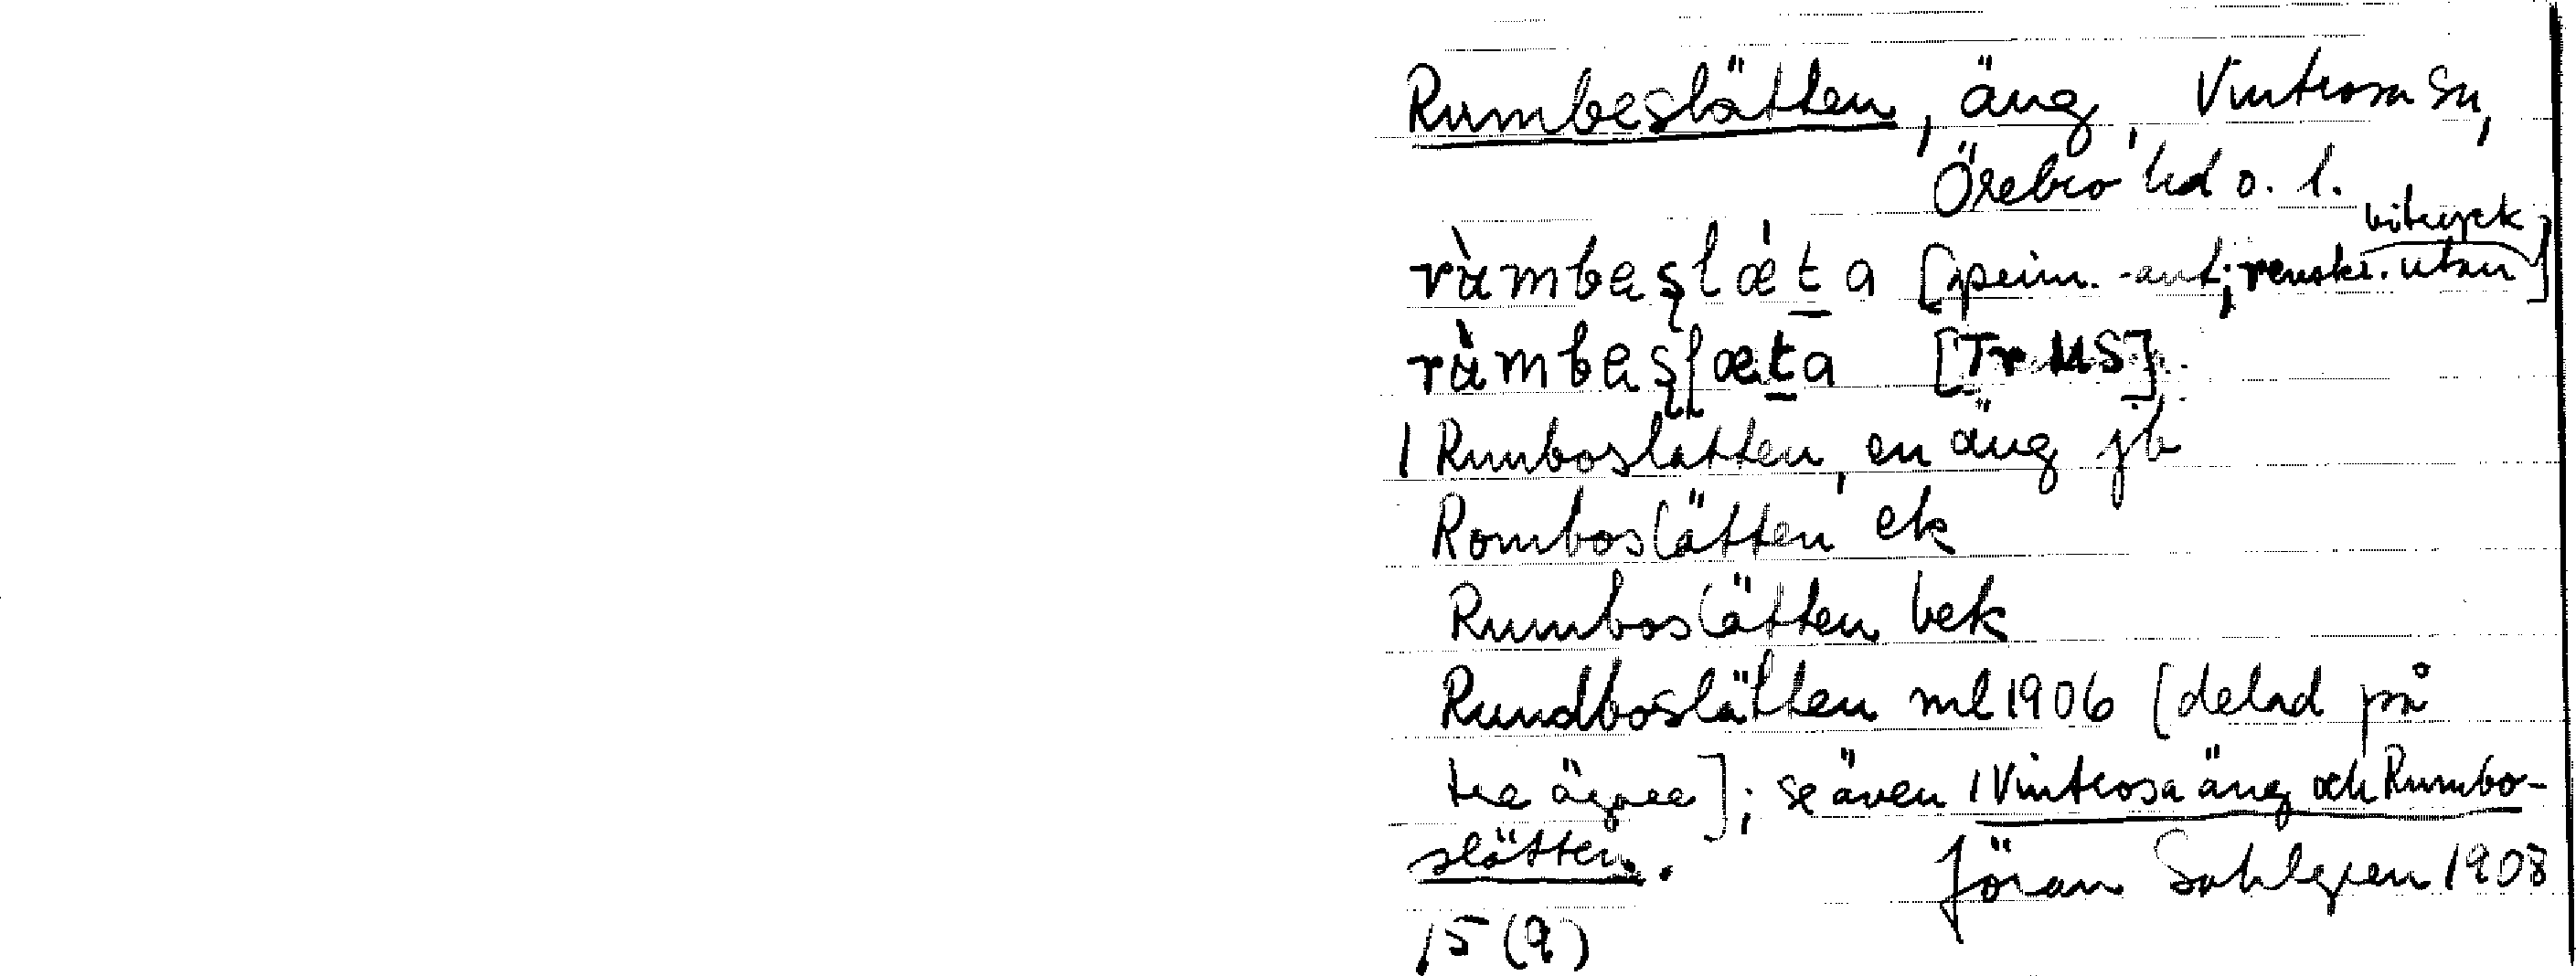 Rumbeslätten, äng, Vintrosa sn,
Örebro hd o. l.
bitryck
ràmbeslæ̀ta [prim.-ant; renskr. utan]
ràmbeslæta [Tr. MS]
1 Rumboslätten, en äng jb
Romboslätten ek
Rumboslätten bek
Rundboslätten ml 1906 [delad på
tre ägare]; se även 1 Vintrosa äng och Rumbo-
slätten.
Jöran Sahlgren 1908
15 (9)